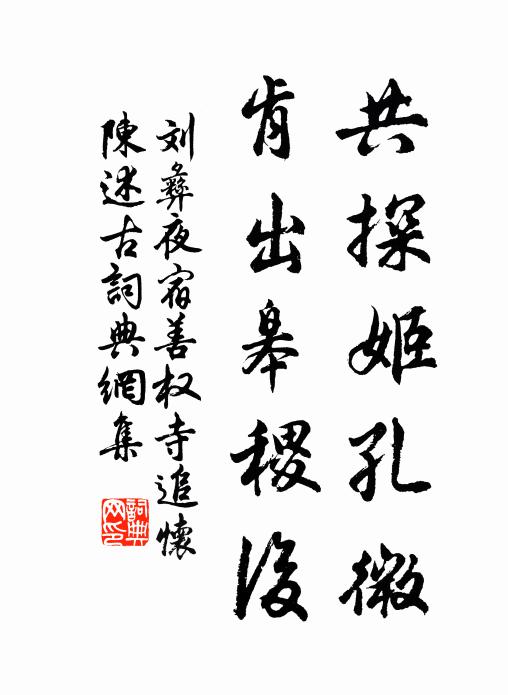 共探姬孔微
肯出皋稷後
刘彝夜宿善权寺追懷
陳述古詞典網集
詞典網印